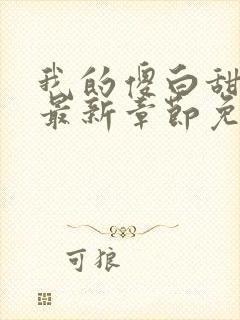 我的傻白甜
最新章节免
可狼